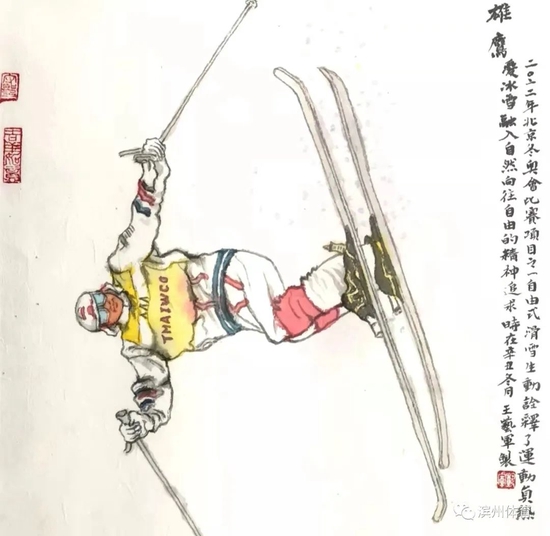 雄鹰
二〇二二年北京冬奥會比賽項目之一自由式滑雪生動詮釋了運動員熱
愛冰雪融入自然向往自由的精神追求 時在辛丑冬月 王藝軍製
XXV
THAIWCO
滨州体育